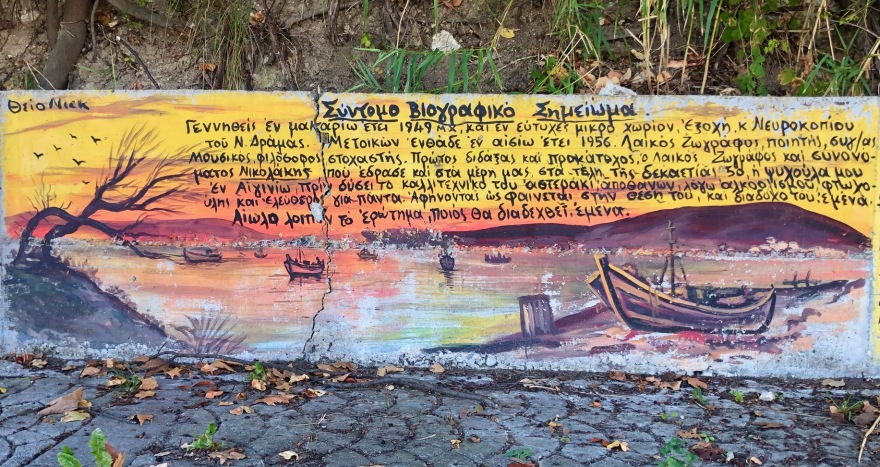 Θείο Νίεκ
Σύντομο Βιογραφικό Σημείωμα
Γεννηθείς έν μακαρίω έτει 1949 μχ, και έν εύτυχές μικρό χωρίον, Έξοχή, κ Νευροκοπίου
τού Ν. Δράμας. Μετοικών ένθάδε έν αισίω έτει 1956. Λαϊκός Ζωγράφος, ποιητής, συχ/ας
Μουσικός, φιλόσοφος στοχαστής. Πρώτος διδάξας και προκάτοχος, ο Λαϊκός Ζωγράφος και συνονό-
ματος Νικολάκης που έδρασε και στα μέρη μας, στα τέλη της δεκαετίας 50, ή ψυχούλα μου
έν Αίγινίω, πρίν δύσει το καλλιτεχνικό του άστεράκι, άποθανών, λόγω αλκοολισμού, φτωχο-
ύλης και έλεύθερος γιά πάντα. Άφήνοντας ώς φαίνεται στην θέση του, και διάδοχό του έμένα.
Αίωλο λοιπόν τό έρώτημα, ποιός θα διαδεχθεί, έμένα.